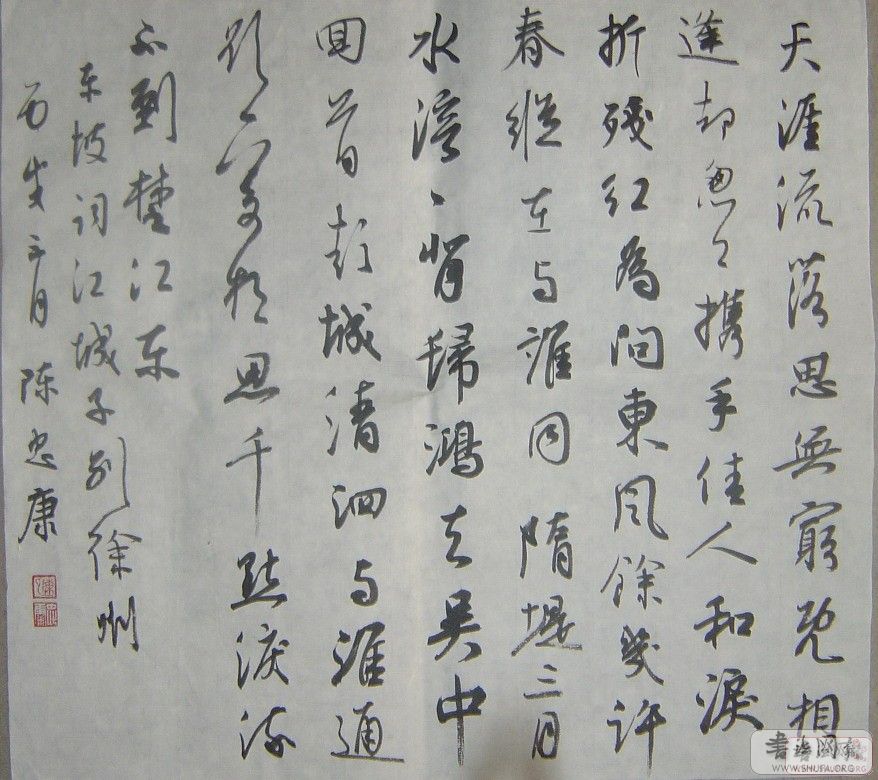 天涯流落思無窮既相
逢却怱々攜手佳人和淚
折殘紅為问東風餘幾許
春縱在与誰同隋堤三月
水溶々背歸鴻去吳中
回首彭城清泗与淮通
欲寄相思千點淚流
不到楚江东
东坡词江城子别徐州
丙戌三月陈忠康
WWW.SHUFA.ORG